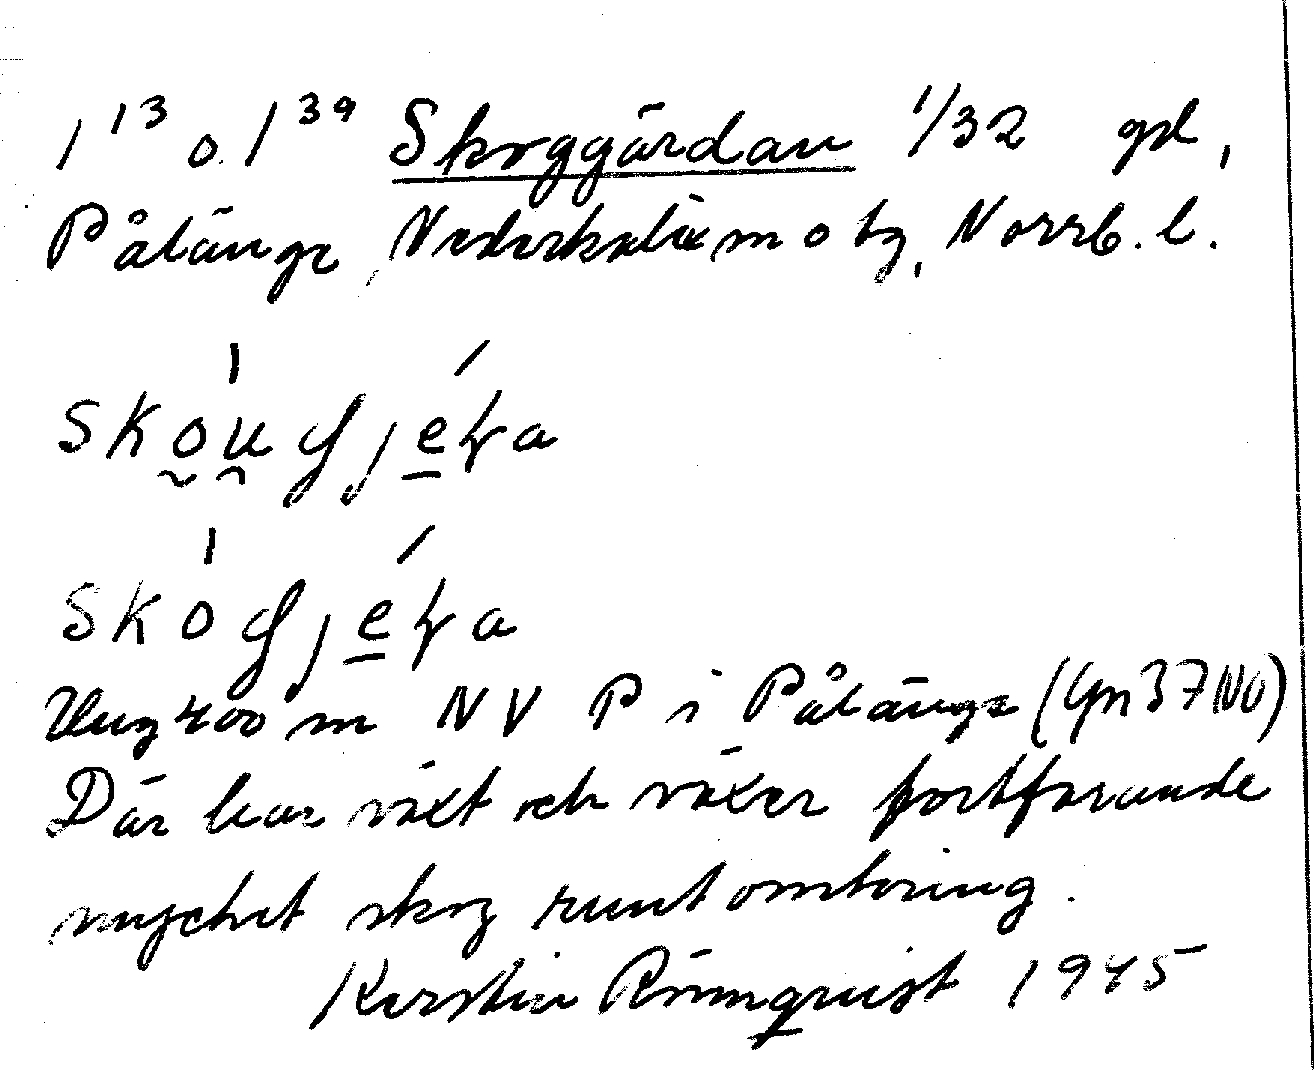 1¹³ o. 1³⁹ Skoggärdan 1/32 gd,
Pålänge, Nederkalix sn o tg, Norrb. l.
Ung 400 m NV P i Pålänge (Gn37NV)
Där har växt och växer fortfarande
mycket skog runtomkring.
Kerstin Rönnquist 1945